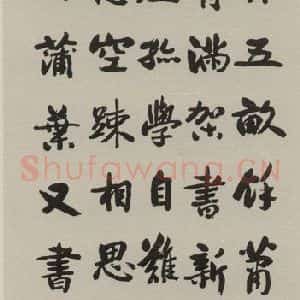 五畝餘蕭
有滿架書新
學自難
空踈相思
蒲葉又書
Shufawang.CN